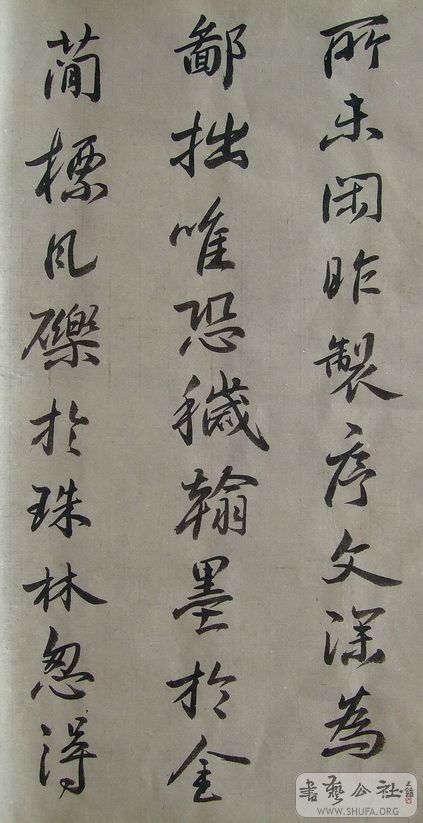 所未閑昨製序文深為
鄙拙唯恐穢翰墨於金
簡標凡礫於珠林忽得
書藝公社
WWW.SHUFA.ORG